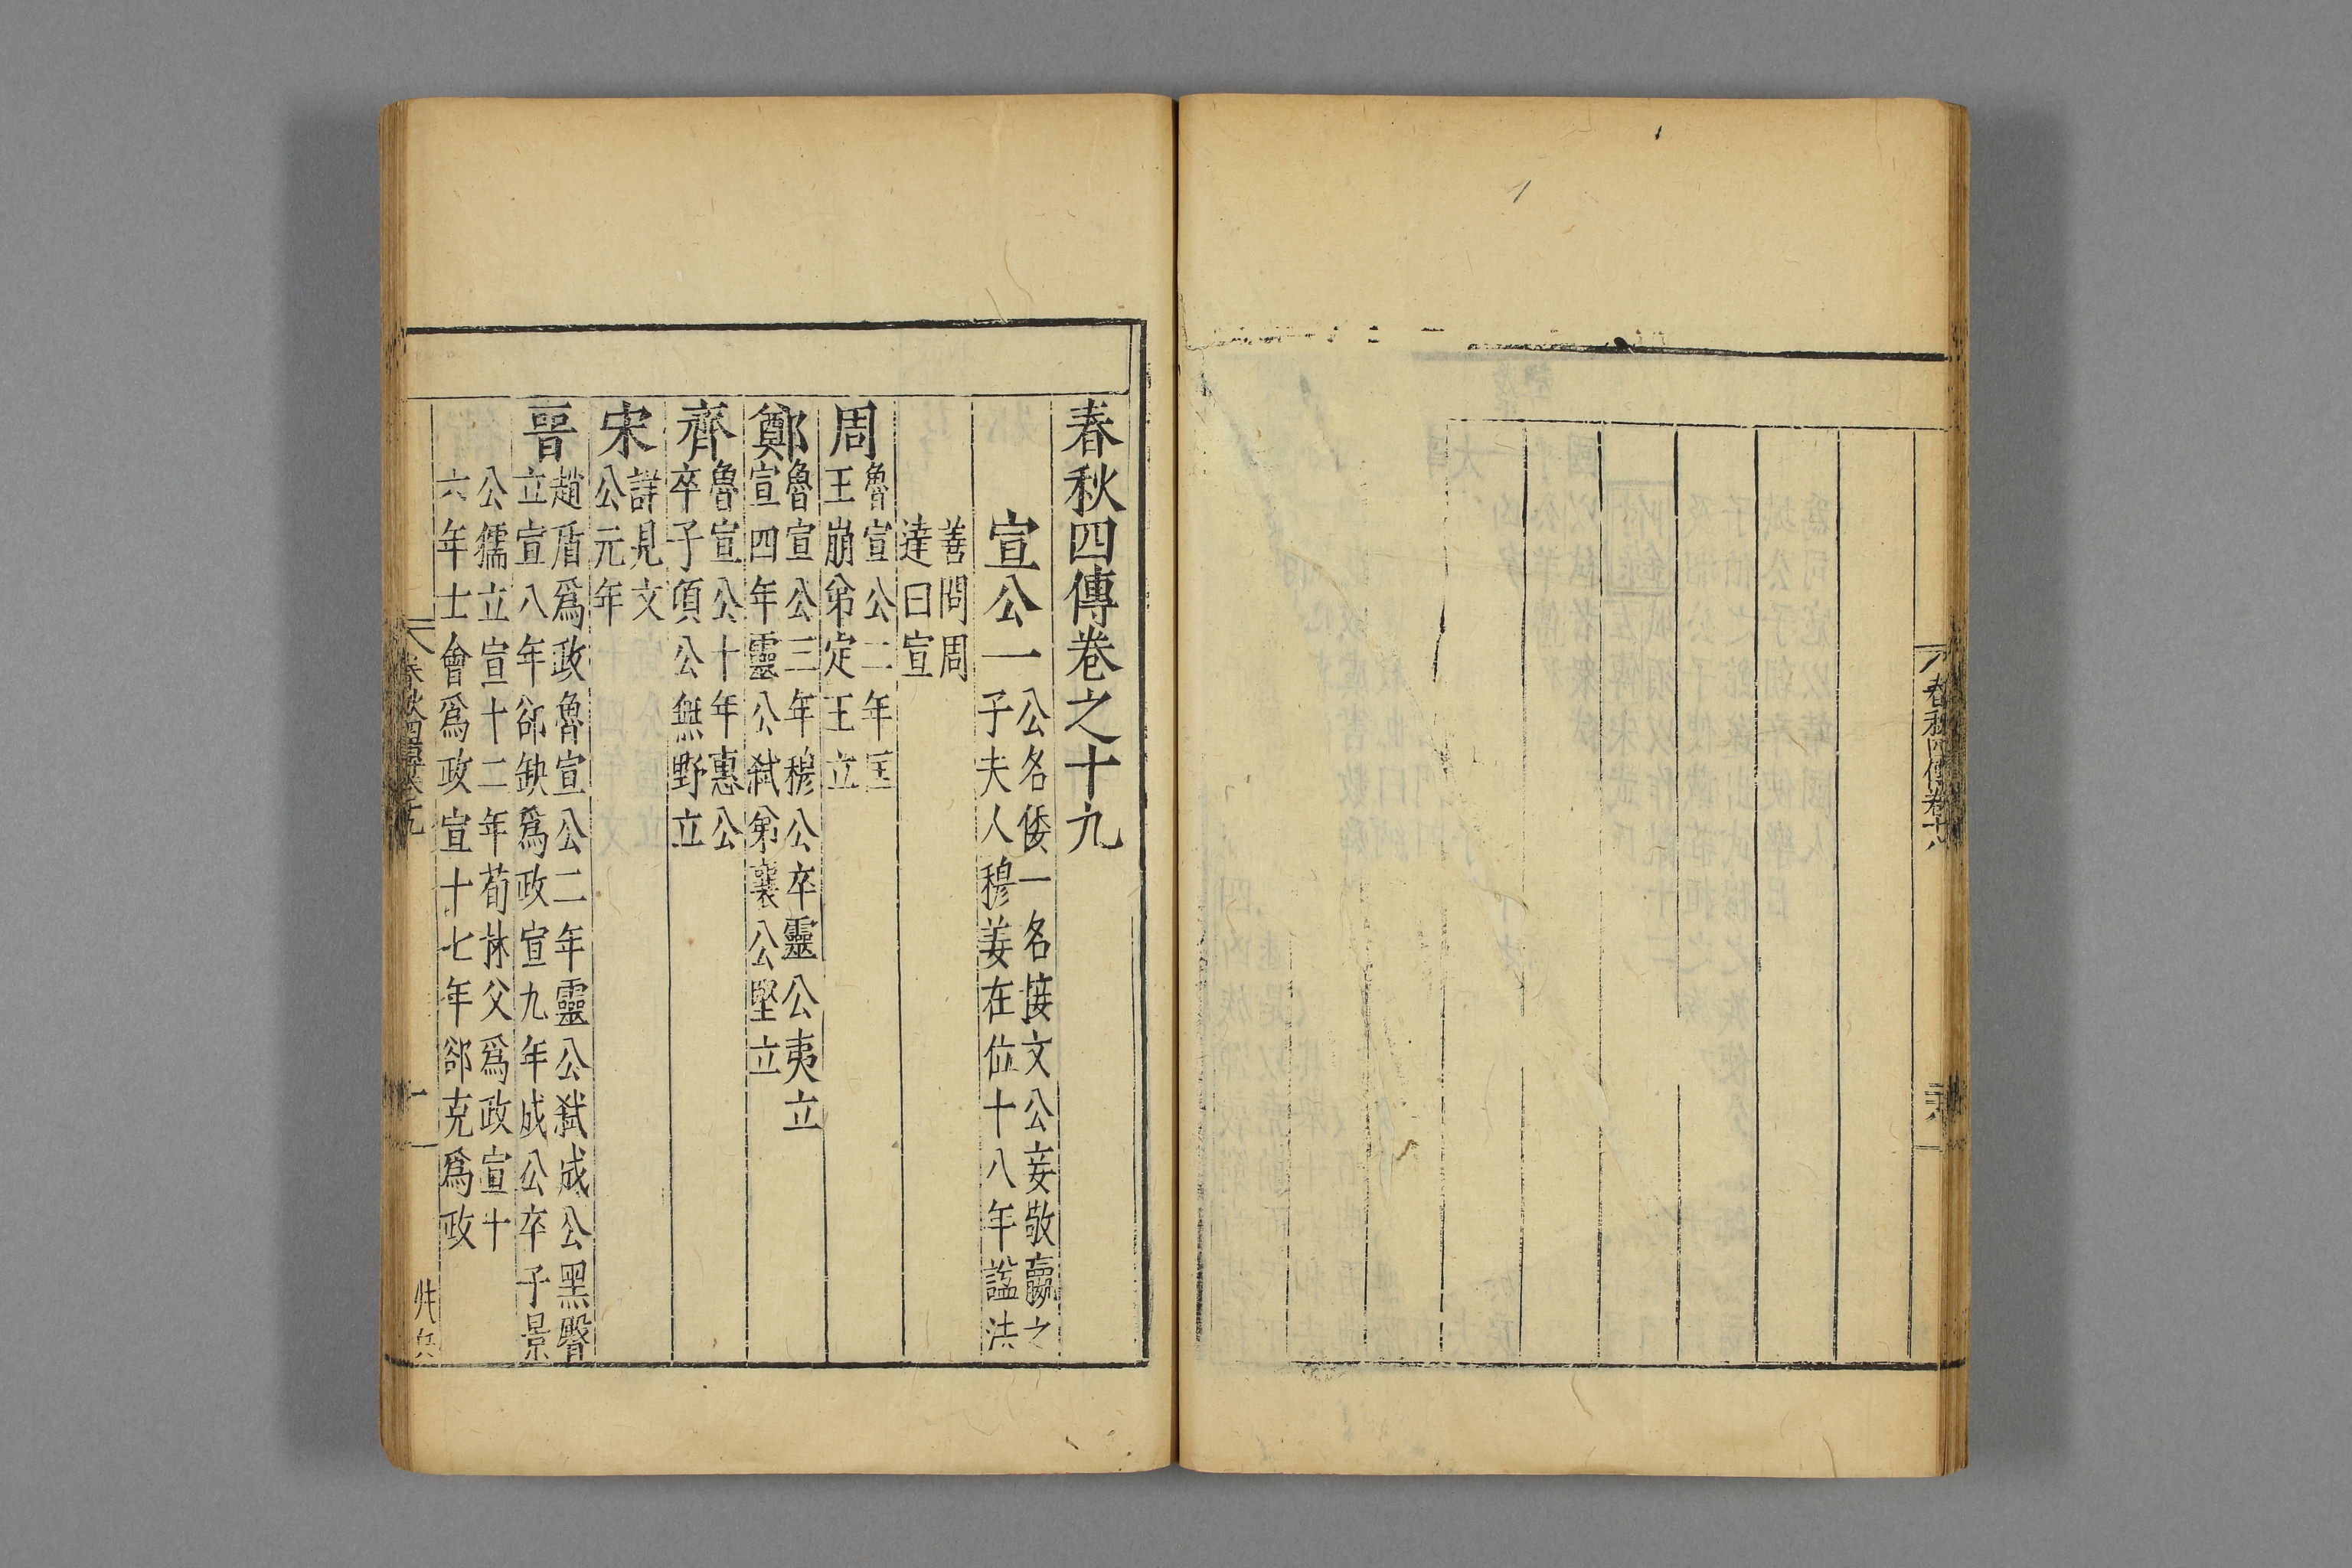 春秋四傳卷十八
春秋四傳卷之十九
宣公一
公名倭一名接文公妾敬嬴之
子夫人穆姜在位十八年諡法
善問周
達曰宣
周
魯宣公二年匡
王崩弟定王立
鄭
魯宣公三年穆公卒靈公夷立
宣四年靈公弑弟襄公堅立
齊
魯宣公十年惠公
卒子頃公無野立
宋
詳見文
公元年
晉
趙盾爲政魯宣公二年靈公弑成公黑臀
立宣八年郤缺爲政宣九年成公卒子景
公獳立宣十二年荀林父爲政宣十
六年士會爲政宣十七年郤克爲政